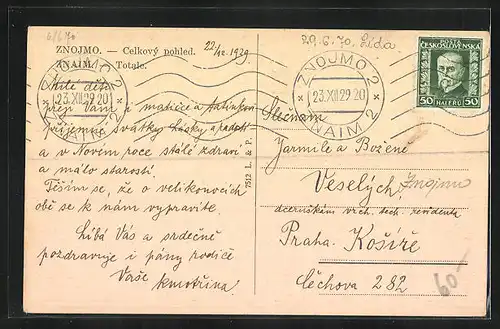 6/670
ZNOJMO. — Celkový pohled. 22/12. 1929
ZNAIM. — Totale.
Milé děti!
přeji Vám a matince a tatínkovi
příjemné svátky, lásky a radosti
a v Novém roce stálé zdraví
a málo starostí.
Těším se, že o velikonocích
obě se k nám vypravíte.
Líbá Vás a srdečně
pozdravuje i pány rodiče
Vaše kmotřina
7512 L. & P.
29.6.70. Lída
ZNOJMO 2
23.XII.29 20
ZNAIM 2
ZNOJMO 2
23.XII.29 20
ZNAIM 2
POŠTA
ČESKOSLOVENSKÁ
50 HALÉŘŮ 50
Slečnám
Jarmile a Boženě
Veselých,
dceruškám vrch. tech.
Praha. Košíře
Čechova 282
60-